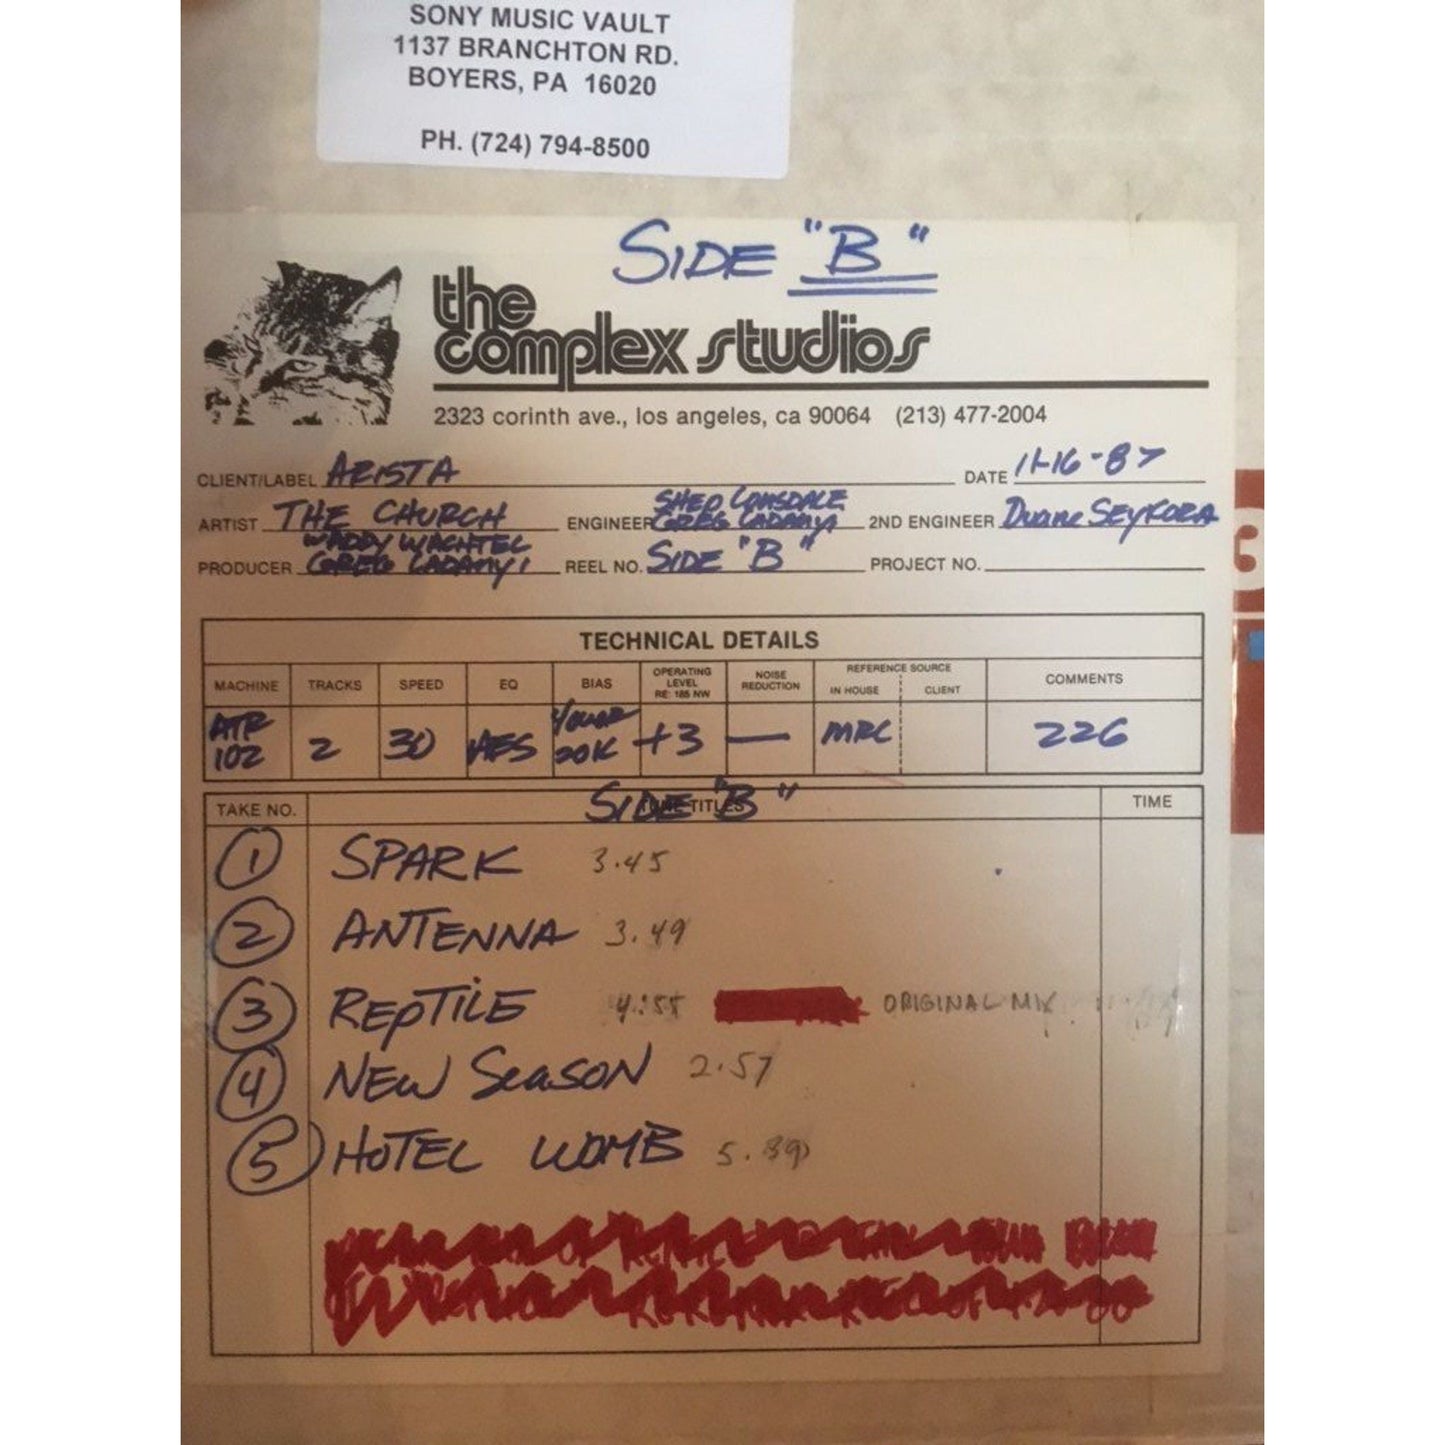 SONY MUSIC VAULT
1137 BRANCHTON RD.
BOYERS, PA 16020
PH. (724) 794-8500
SIDE "B"
the
complex studios
2323 corinth ave., los angeles, ca 90064 (213) 477-2004
CLIENT/LABEL ARISTA DATE 11-16-87
SHEP LONSDALE
ARTIST THE CHURCH ENGINEER GREG LADANYI 2ND ENGINEER Duane SEYKORA
WADDY WACHTEL
PRODUCER GREG LADANYI REEL NO. SIDE "B" PROJECT NO.
TECHNICAL DETAILS
MACHINE TRACKS SPEED EQ BIAS OPERATING LEVEL RE: 185 NW NOISE REDUCTION REFERENCE SOURCE IN HOUSE CLIENT COMMENTS
ATR 102 2 30 AES 20K +3 — MRL 226
TAKE NO. TUNE TITLES SIDE "B" TIME
1 SPARK 3.45
2 ANTENNA 3.49
3 REPTILE 4:55 ORIGINAL MIX
4 NEW SEASON 2.57
5 HOTEL WOMB 5.39